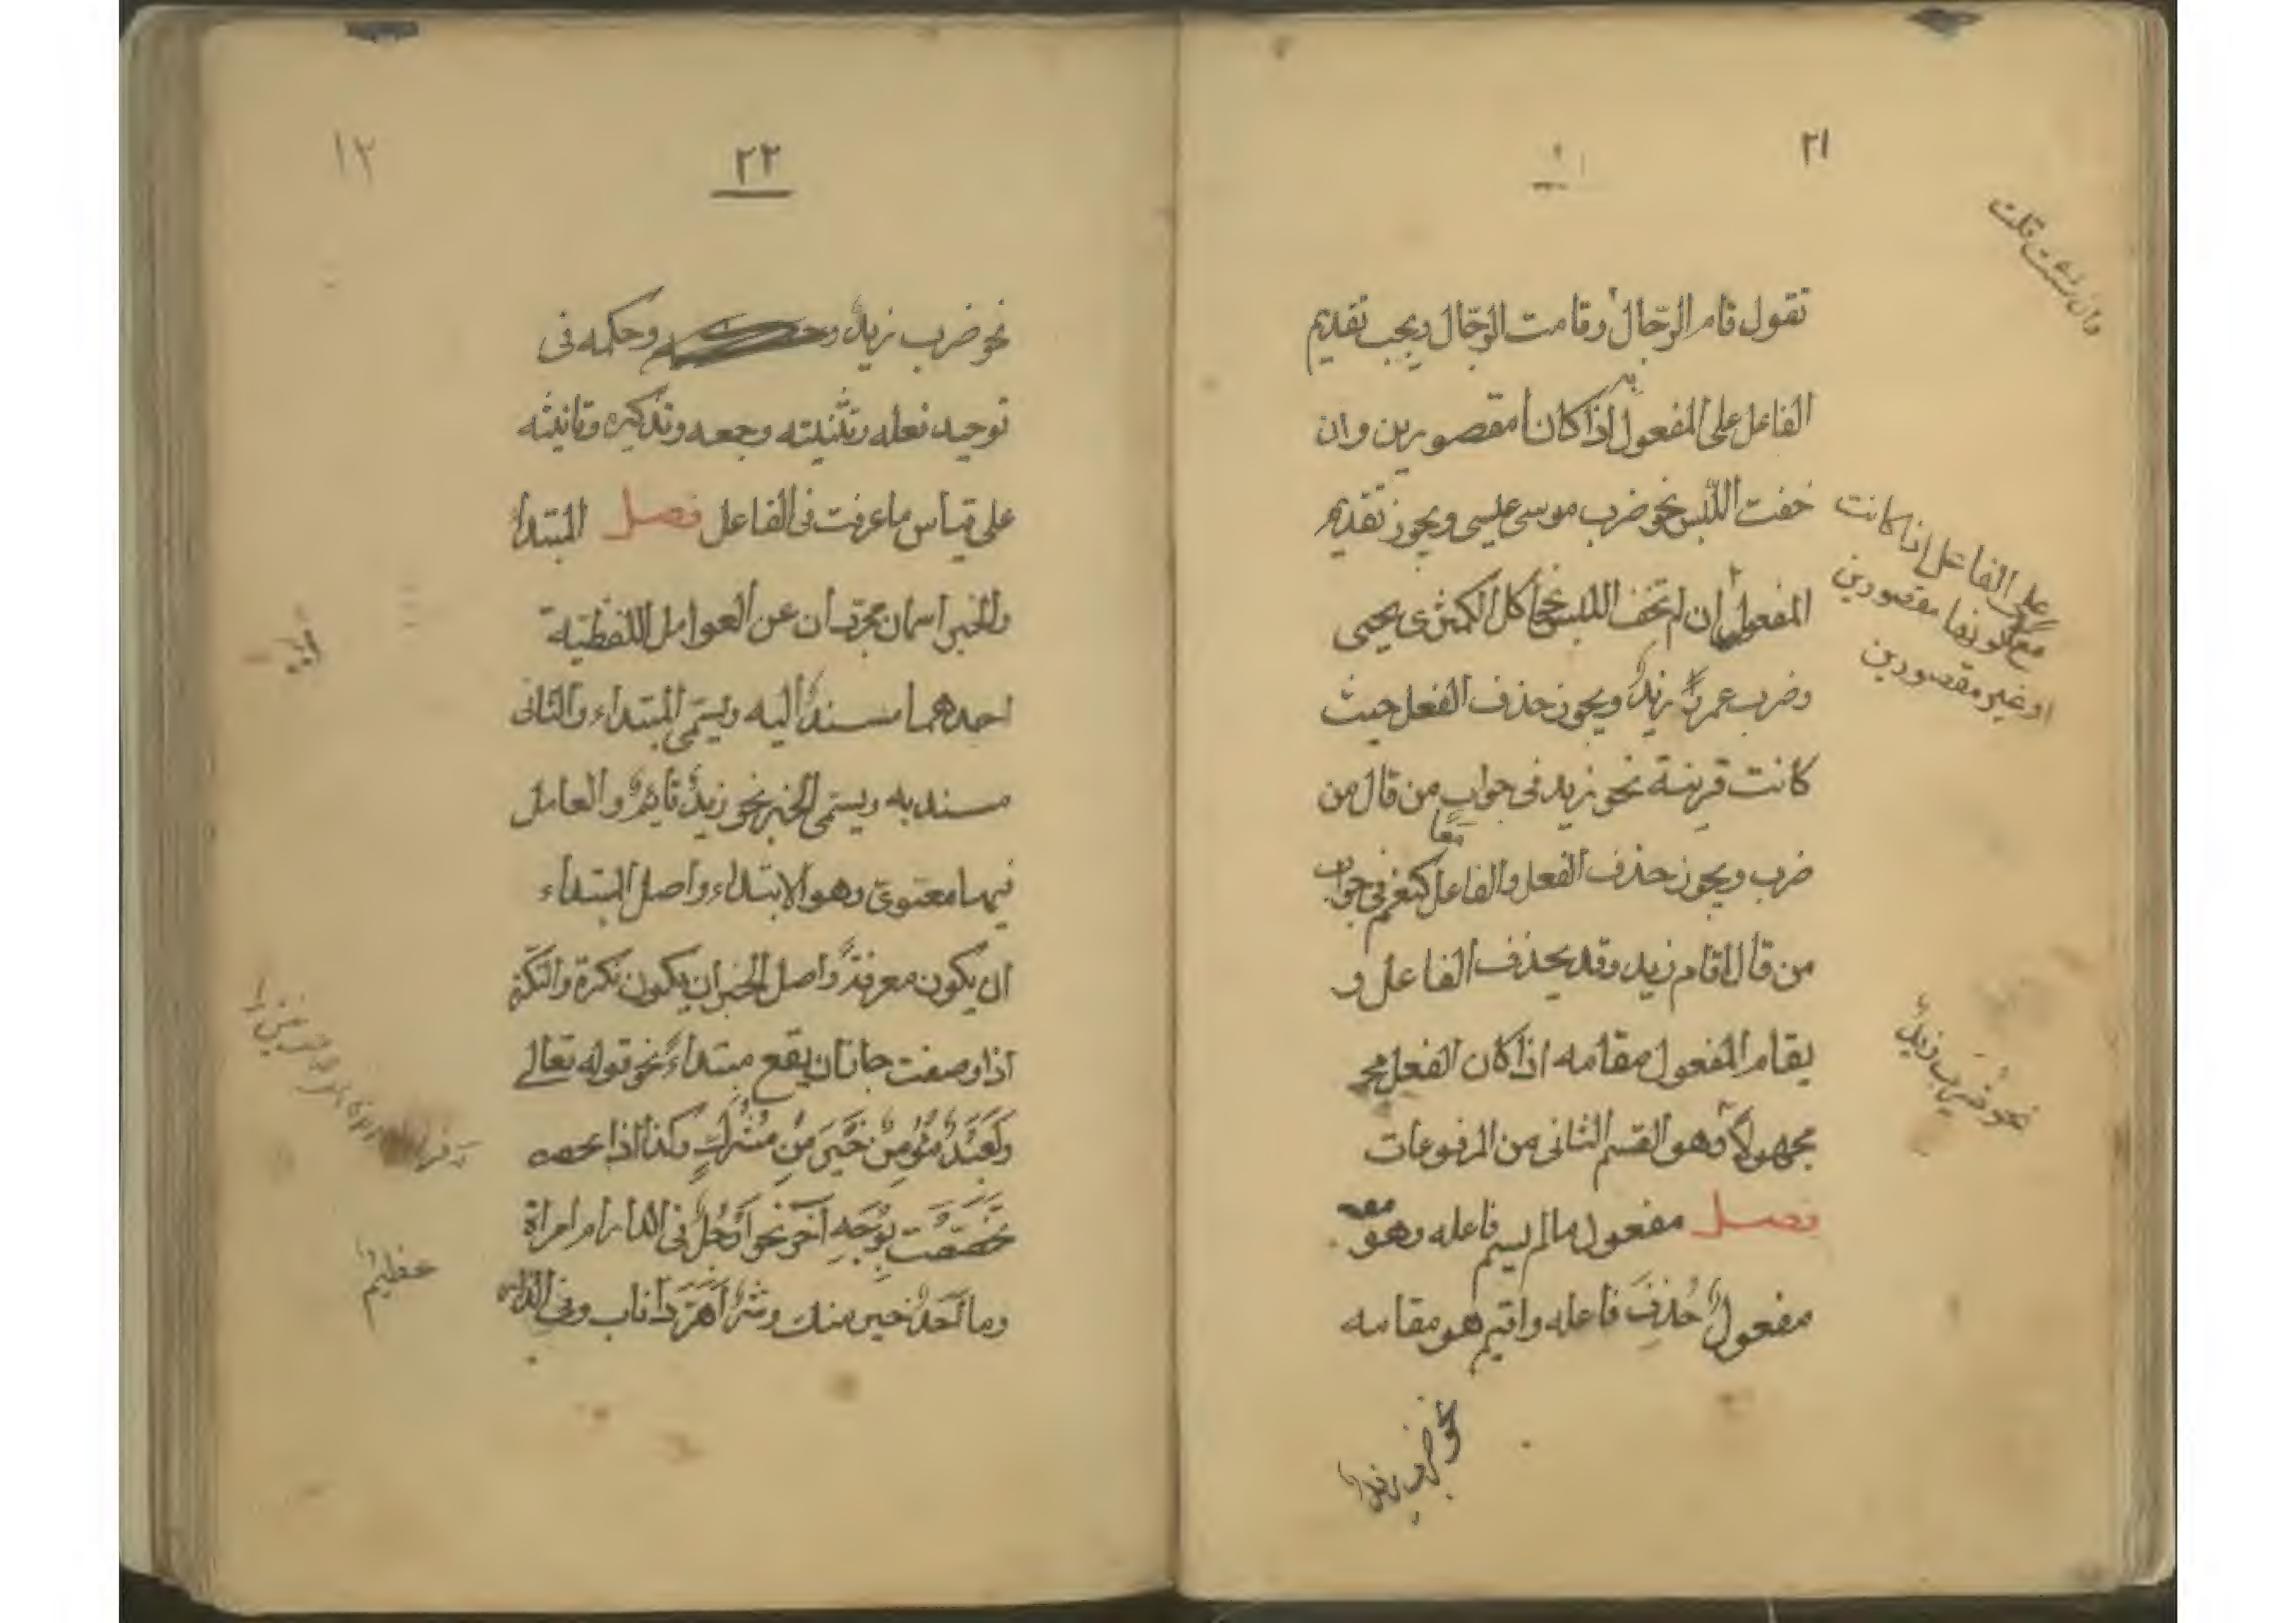 ٢١
وان شئت قلت
تقول قام الرّجال وقامت الرّجال ويجب تقديم
الفاعل على المفعول اذا كانا مقصورين وان
خفت اللبس نحو ضرب موسى عيسى ويجوز تقديم
المفعول ان لم تخف اللبس نحو اكل الكمثرى يحيى
وضرب عمرًا زيدٌ ويجوز حذف الفعل حيث
كانت قرينة نحو زيد فى جواب من قال من
معا
ضرب ويجوز حذف الفعل والفاعل كنعم فى جواب
من قال اقام زيد وقد يحذف الفاعل و
يقام المفعول مقامه اذا كان الفعل مج
مجهولاً وهو القسم الثانى من المرفوعات
فصل مفعول مالم يسم فاعله وهو
مفعولٌ حُذِفَ فاعله واقيم هو مقامه
على الفاعل اذا كانت
مقصورين
او غير مقصورين
نحو ضرب زيدٌ
نحو ضرب زيدٌ
٢٢
١٢
نحو ضرب زيدٌ وحكمه فى
توحيد فعله وتثنيته وجمعه وتذكيره وتانيثه
على قياس ما عرفت فى الفاعل فصل المبتدأ
والخبر اسمان مجرّدان عن العوامل اللفظيّة
احدهما مسندٌ اليه ويسمّى المبتداء والثانى
مسند به ويسمّى الخبر نحو زيدٌ قائمٌ والعامل
فيهما معنوىّ وهو الابتداء واصل المبتداء
ان يكون معرفةً واصل الخبر ان يكون نكرة والنكرة
اذا وصفت جاز ان يقع مبتداءً نحو قوله تعالى
وَلَعَبْدٌ مُؤْمِنٌ خَيْرٌ مِنْ مُشْرِكٍ وكذا اذا
تَخَصَّصَت بِوَجْهٍ آخَر نحو أَرَجُلٌ فى الدار ام امراة
وما اَحَدٌ خير منك وشَرٌّ اَهَرَّ ذا ناب وفى الدار
عظيمٌ